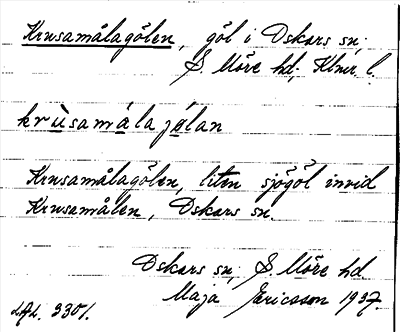 Krusamålagölen, göl i Oskars sn;
S. Möre hd; Klmr l.
krùsamåla jølan
Krusamålagölen, liten sjögöl invid
Krusamålen, Oskars sn.
Oskars sn, S. Möre hd
Maja Ericsson 1937.
LAL. 3301.